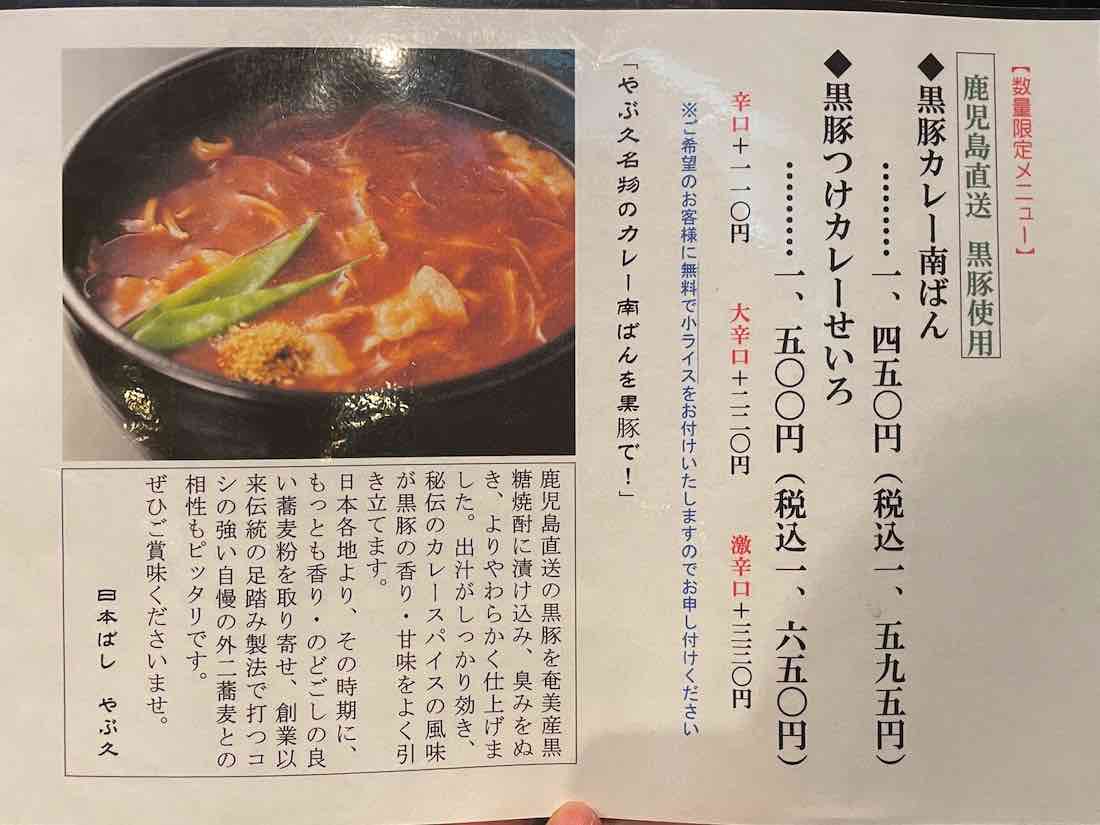 【数量限定メニュー】
鹿児島直送 黒豚使用
◆黒豚カレー南ばん
…………一、四五〇円（税込一、五九五円）
◆黒豚つけカレーせいろ
…………一、五〇〇円（税込一、六五〇円）
辛口＋一一〇円 大辛口＋二二〇円 激辛口＋三三〇円
※ご希望のお客様に無料で小ライスをお付けいたしますのでお申し付けください
「やぶ久名物のカレー南ばんを黒豚で！」
鹿児島直送の黒豚を奄美産黒
糖焼酎に漬け込み、臭みをぬ
き、よりやわらかく仕上げま
した。出汁がしっかり効き、
秘伝のカレースパイスの風味
が黒豚の香り・甘味をよく引
き立てます。
日本各地より、その時期に、
もっとも香り・のどごしの良
い蕎麦粉を取り寄せ、創業以
来伝統の足踏み製法で打つコ
シの強い自慢の外二蕎麦との
相性もピッタリです。
ぜひご賞味くださいませ。
日本ばし やぶ久